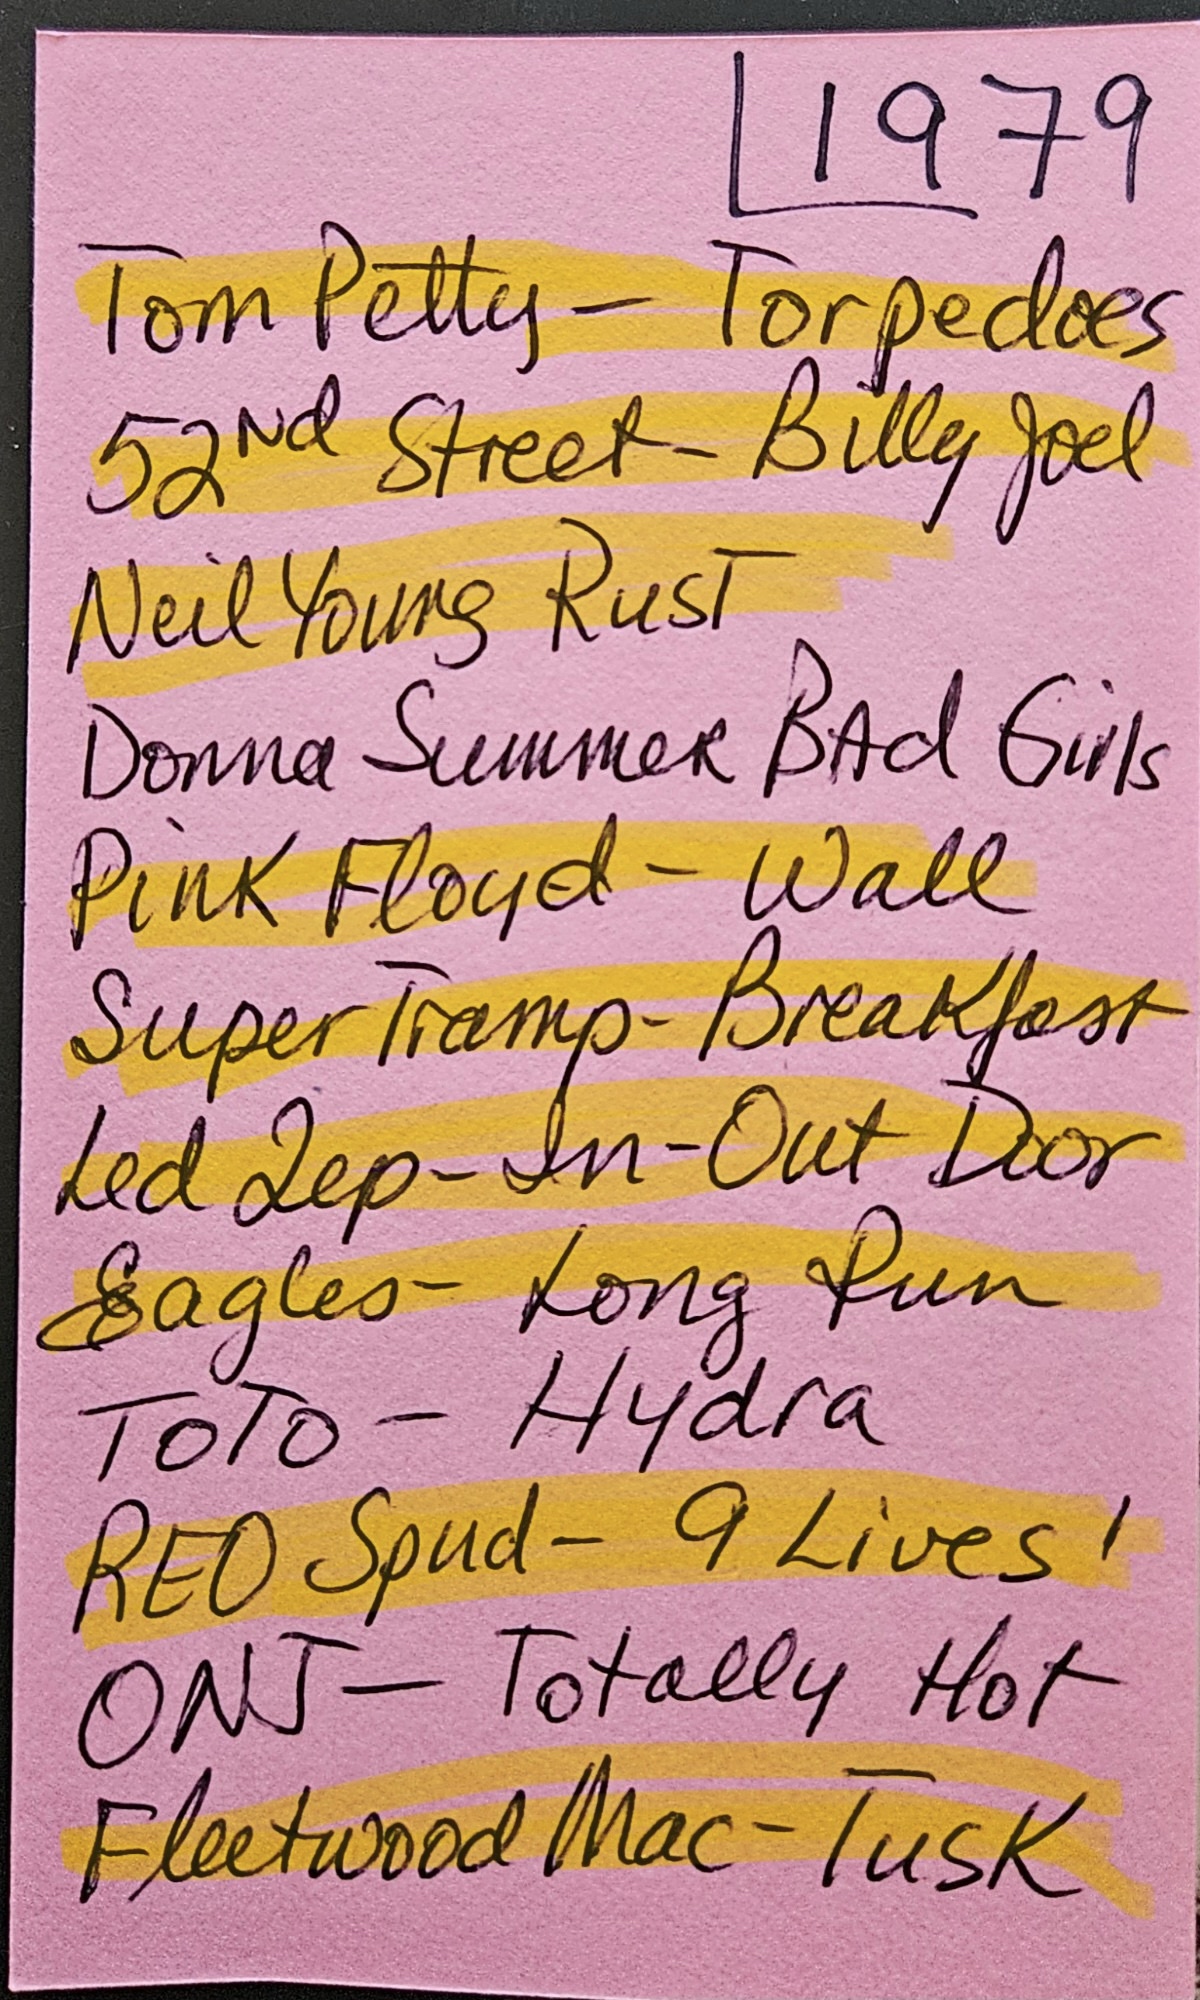 1979
Tom Petty - Torpedoes
52Nd Street - Billy Joel
Neil Young Rust
Donna Summer BAd Girls
Pink Floyd - Wall
SuperTramp - Breakfast
Led Zep - In-Out Door
Eagles - Long Run
ToTo - Hydra
REO Spud - 9 Lives!
ONJ - Totally Hot
Fleetwood Mac - Tusk